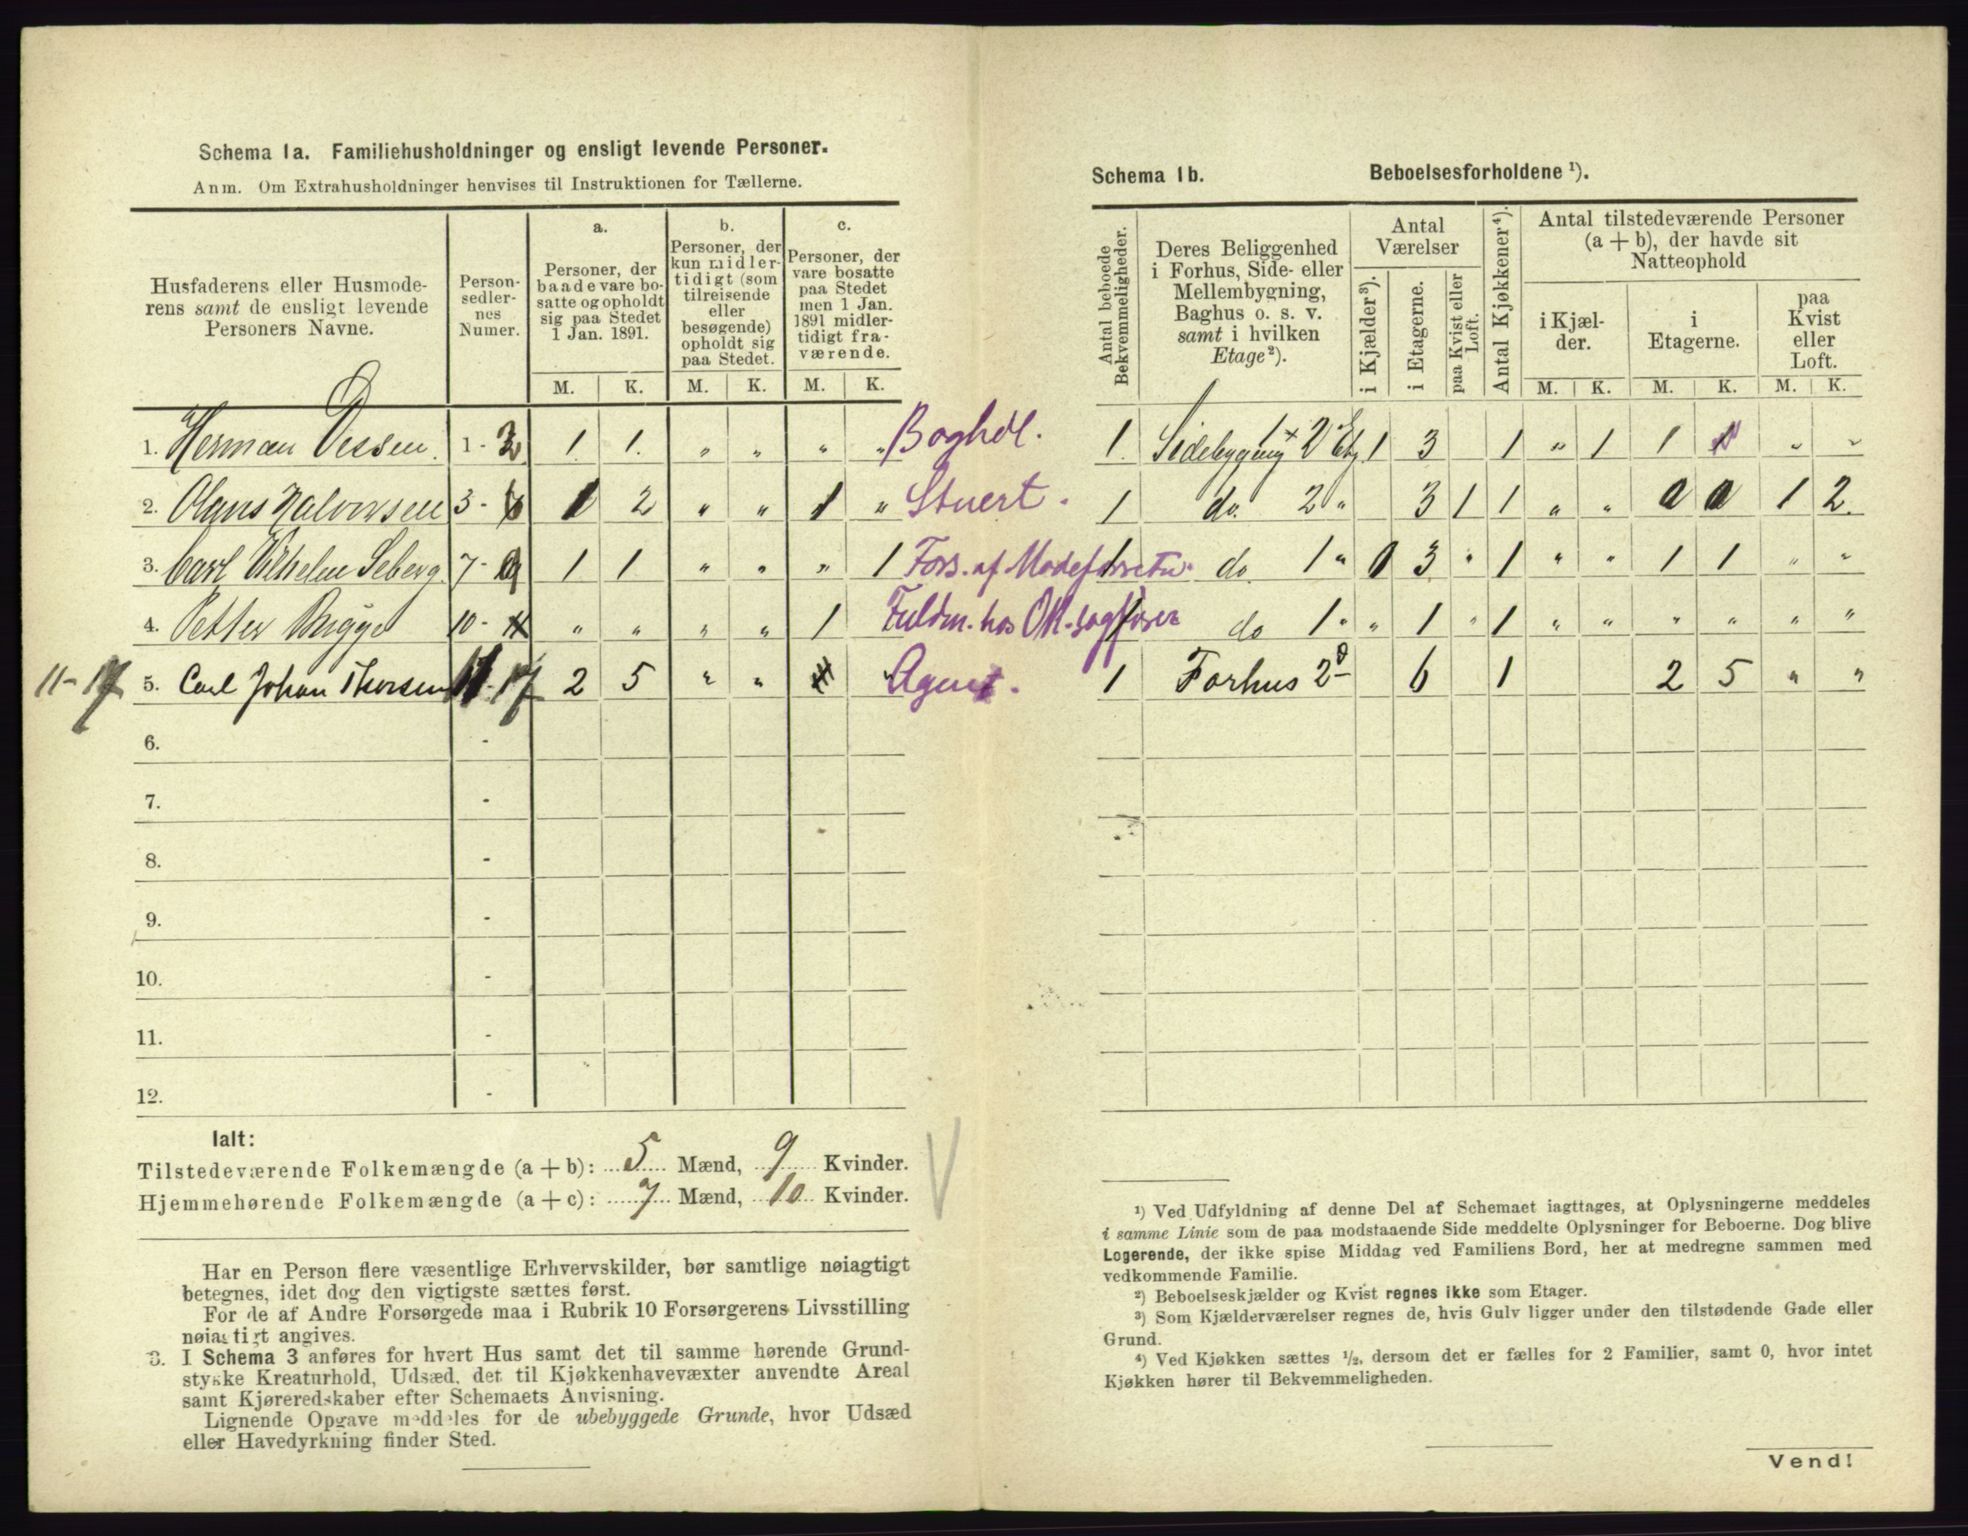 Schema 1 a. Familiehusholdninger og ensligt levende Personer.
Anm. Om Extrahusholdninger henvises til Instruktionen for Tællerne.
Husfaderens eller Husmode-
rens samt de ensligt levende
Personers Navne.
Person-
sedler-
nes
Numer.
a.
Personer, der
baade vare bo-
satte og opholdt
sig paa Stedet
1 Jan. 1891.
b.
Personer, der
kun midler-
tidigt (som
tilreisende
eller
besøgende)
opholdt sig
paa Stedet.
c.
Personer, der
vare bosatte
paa Stedet
men 1 Jan.
1891 midler-
tidigt fra-
værende.
M. K. M. K. M. K.
1. Herman Dessen. 1 - 2 1 1. " " " " Boghdl.
2. Olaus Halvorsen 3 - 6 1 2 " " 1 " Stuert.
3. Carl Vilhelm Seberg 7 - 9 1 1 " " " 1 Fors. af Modeforretn.
4. Petter Bugge 10 - " " " " 1 Fuldm. hos OR.sagfører
11-17 5. Carl Johan Thorsen 11 - 17 2 5 " " " Agent.
6. -
7. -
8. -
9. -
10. -
11. -
12. -
Ialt:
Tilstedeværende Folkemængde (a + b): 5 Mænd, 9 Kvinder.
Hjemmehørende Folkemængde (a + c): 7 Mænd, 10 Kvinder.
Har en Person flere væsentlige Erhvervskilder, bør samtlige nøiagtigt
betegnes, idet dog den vigtigste sættes først.
For de af Andre Forsørgede maa i Rubrik 10 Forsørgerens Livsstilling
nøiagtigt angives.
3. I Schema 3 anføres for hvert Hus samt det til samme hørende Grund-
stykke Kreaturhold, Udsæd, det til Kjøkkenhavevæxter anvendte Areal
samt Kjøreredskaber efter Schemaets Anvisning.
Lignende Opgave meddeles for de ubebyggede Grunde, hvor Udsæd
eller Havedyrkning finder Sted.
Schema 1 b. Beboelsesforholdene ¹).
Antal beboede
Bekvemmeligheder.
Deres Beliggenhed
i Forhus, Side- eller
Mellembygning,
Baghus o. s. v.
samt i hvilken
Etage²).
Antal
Værelser
i Kjælder³).
i Etagerne.
paa Kvist eller
Loft.
Antal Kjøkkener⁴).
Antal tilstedeværende Personer
(a + b), der havde sit
Natteophold
i Kjæl-
der.
i
Etagerne.
paa
Kvist
eller
Loft.
M. K. M. K. M. K.
1. Sidebygning 1 + 2 Etg. 1 3 1 " 1 1 " "
1 do. 2 " 3 1 1 " " 0 0 1 2.
1 do 1 " 0 3 " 1 " " 1 1 " "
1 do 1 " " 1 " 1 " " " " " "
1 Forhus 2 " 6 1 2 5 " "
¹) Ved Udfyldning af denne Del af Schemaet iagttages, at Oplysningerne meddeles
i samme Linie som de paa modstaaende Side meddelte Oplysninger for Beboerne. Dog blive
Logerende, der ikke spise Middag ved Familiens Bord, her at medregne sammen med
vedkommende Familie.
²) Beboelseskjælder og Kvist regnes ikke som Etager.
³) Som Kjælderværelser regnes de, hvis Gulv ligger under den tilstødende Gade eller
Grund.
⁴) Ved Kjøkken sættes ½, dersom det er fælles for 2 Familier, samt 0, hvor intet
Kjøkken hører til Bekvemmeligheden.
Vend!